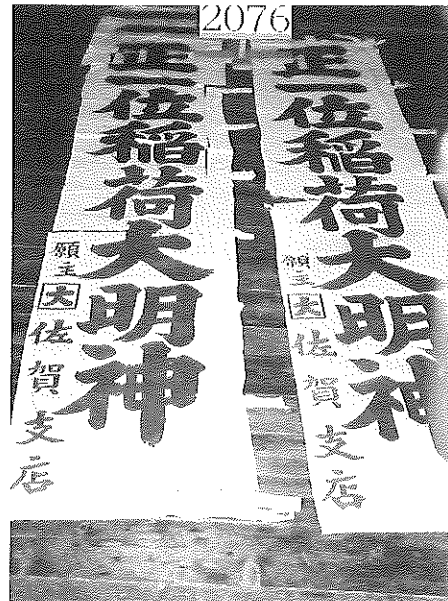 2076
正一位稲荷大明神
願主 大 佐賀支店
正一位稲荷大明神
願主 大 佐賀支店